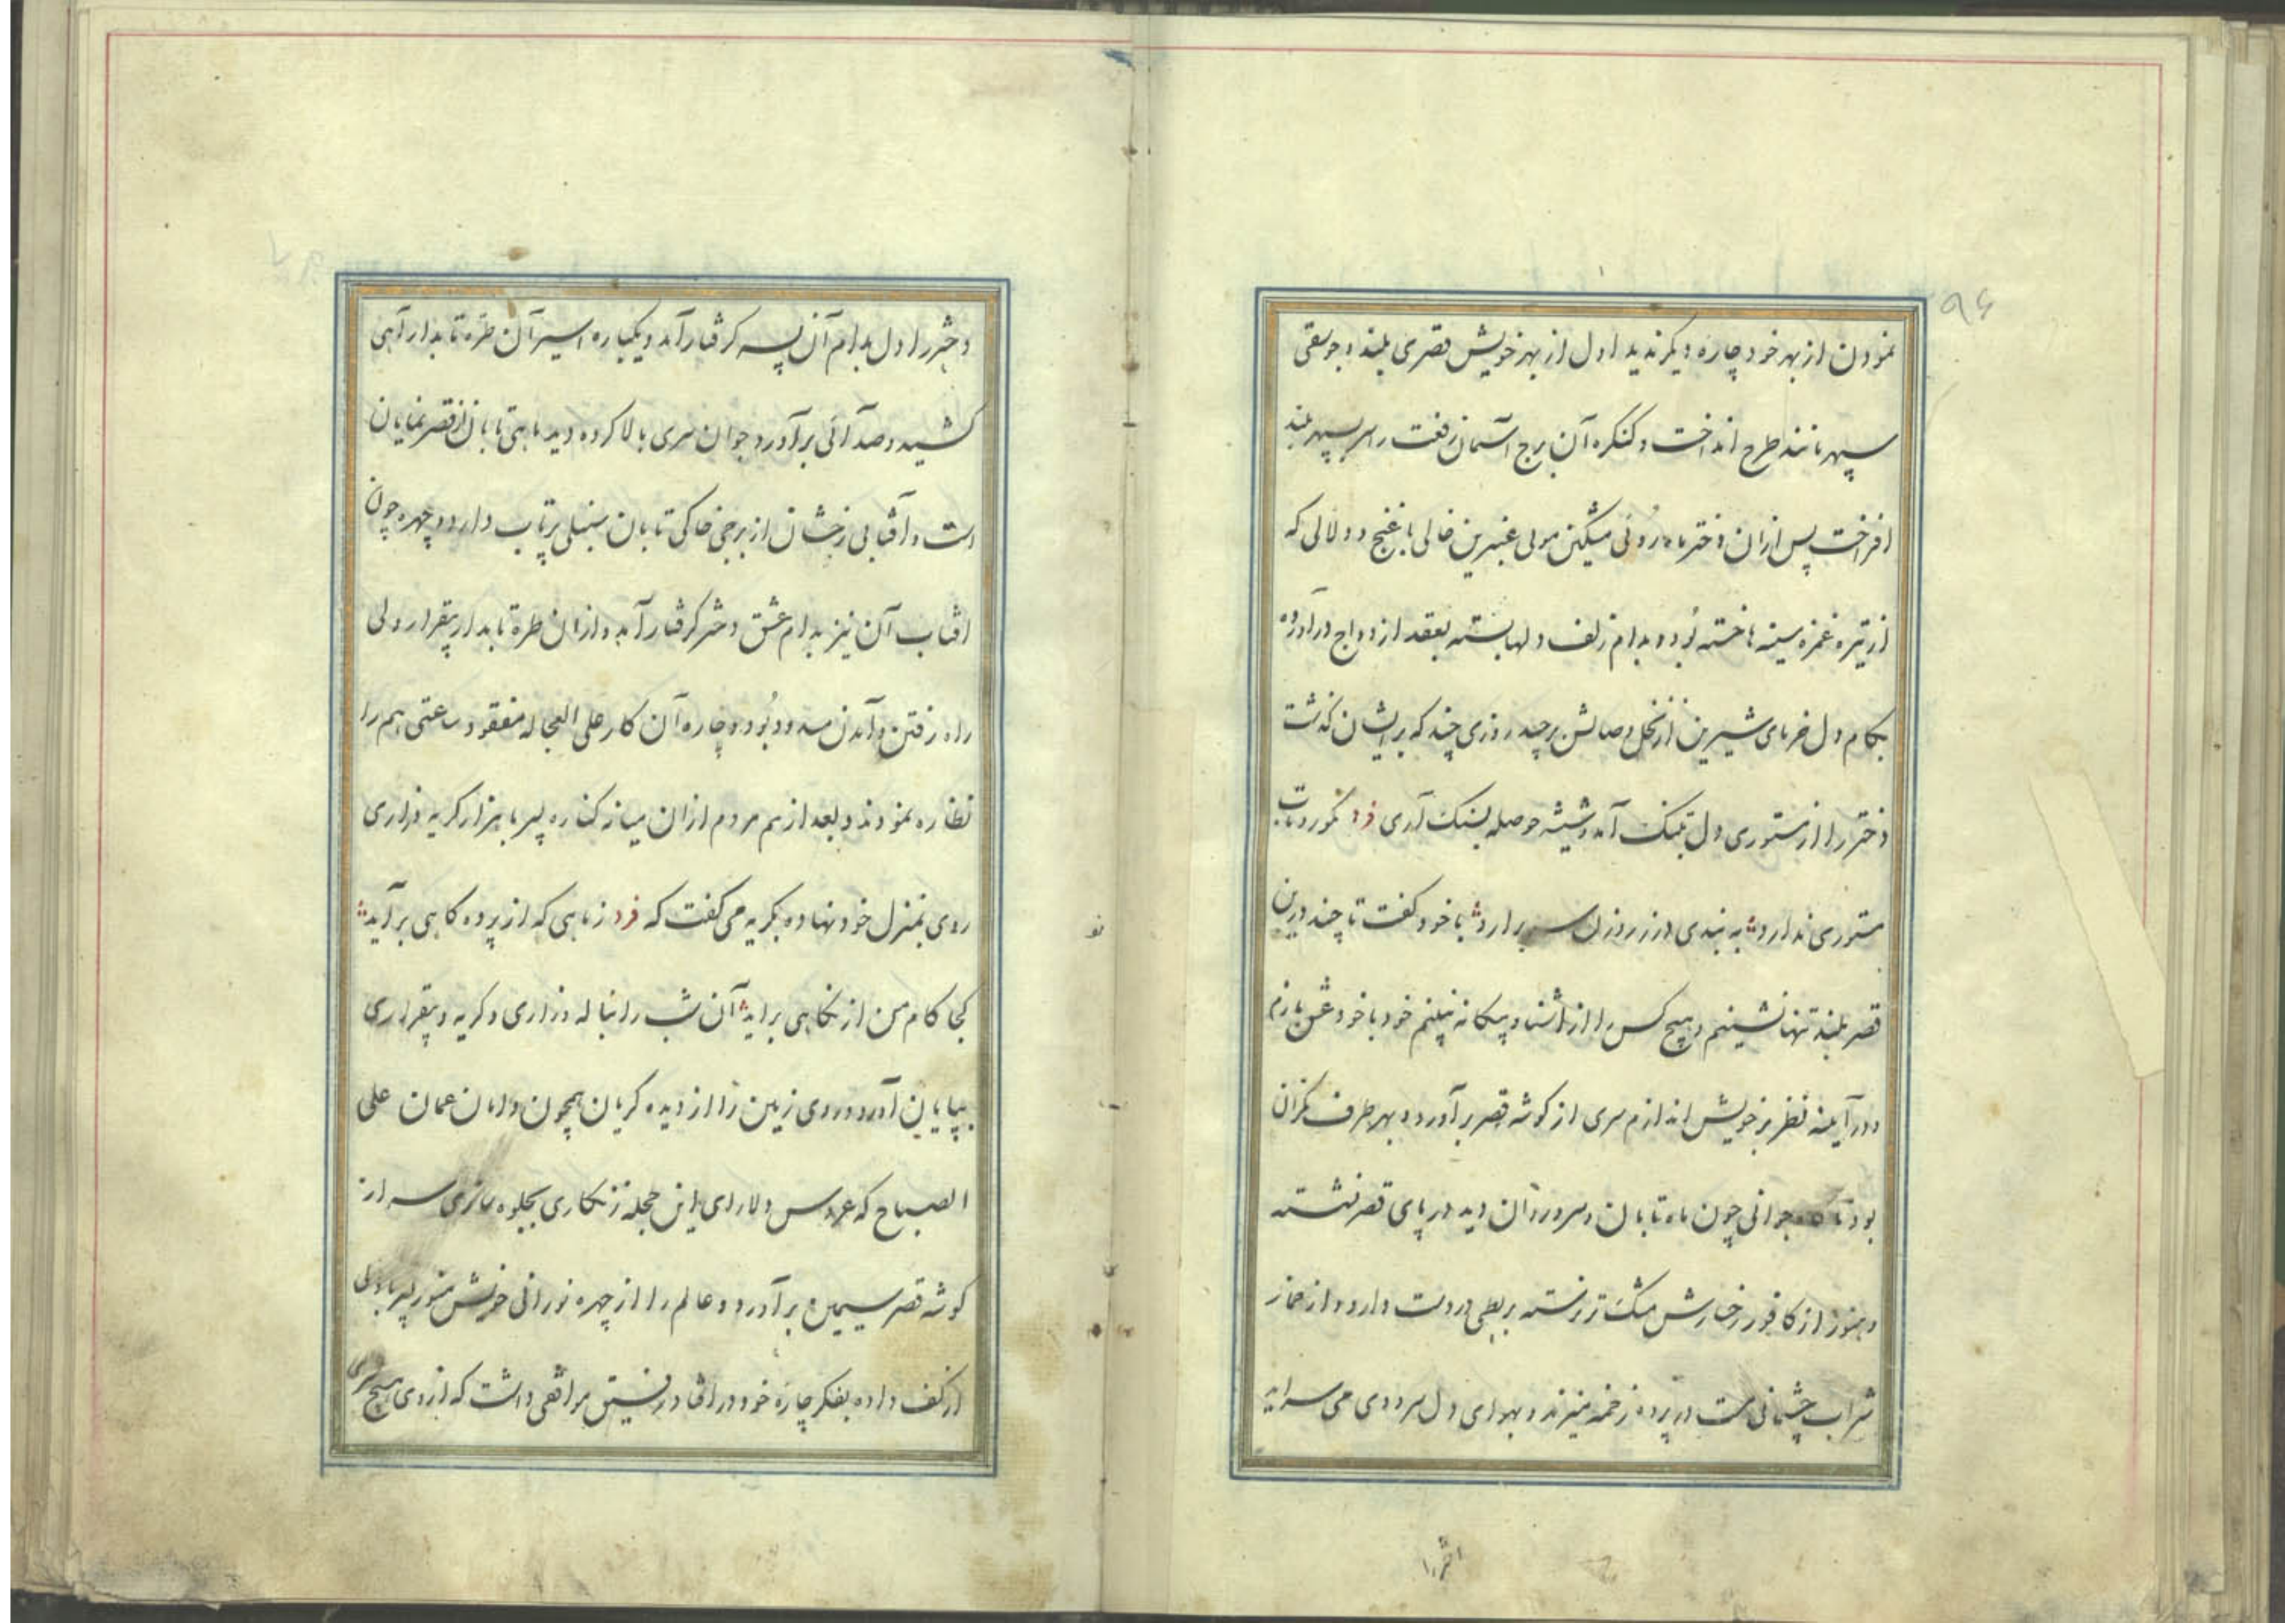 ۹۶
نمودن از بهر خود چاره دیگر ندید اول از بهر خویش قصری بلند و جوسقی
سپهر مانند طرح انداخت و کنکره آن برج آسمان رفعت را بر سپهر بلند
افراخت پس ازان دختر ماه روئی مشکین موئی عنبرین خالی با غنج و دلالی که
از تیره غمزه سینه ها خسته بود و بدام زلف دلها بسته بعقد ازدواج درآورده
بکام دل خرمای شیرین از نخل وصالش برچید روزی چند که بر ایشان گذشت
دختر را از مستوری دل بتنک آمد و شیشه حوصله بسنک آری فرد نکورو تاب
مستوری ندارد به بندی در ز روزن سر برارد با خود کفت تا چند درین
قصر بلند تنها نشینم و هیچ کس را از آشنا و بیکانه نبینم خود با خود عشق بازم
و در آینه نظر بر خویش اندازم سری از کوشه قصر برآورد و بهر طرف نکران
بود ناکاه جوانی چون ماه تابان و سرو روان دید در پای قصر نشسته
و هنوز از کافور رخسارش مشک تر نرسته بربطی در دست دارد و از خمار
شراب چشمانی مست در پرده زخمه میزند و بهوای دل سرودی می سراید
دختر را دل بدام آن پسر کرفتار آمد و یکباره اسیر آن طره تابدار آهی
کشید و صدائی برآورد جوان سری بالا کرده دید ماهی تابان از قصر نمایان
است و آفتابی رخشان از برجی خاکی تابان سنبلی پرتاب دارد و چهره چون
افتاب آن نیز بدام عشق دختر کرفتار آمد و ازان طره تابدار بیقرار ولی
راه رفتن و آمدن مسدود بود و چاره آن کار علی العجاله مفقود ساعتی هم را
نظاره نمودند و بعد از بیم مردم ازان میانه کناره پسر با هزار کریه و زاری
روی بمنزل خود نهاده بکریه می کفت که فرد ز ماهی که از پرده کاهی برآید
کجا کام من از نکاهی براید آن شب را بناله و زاری و کریه و بیقراری
بپایان آورد و روی زمین را از دیده کریان همچون دامان عمان علی
الصباح که عروس دلارای این حجله زنکاری بجلوه سازی سر از
کوشه قصر سیمین برآورد و عالم را از چهره نورانی خویش منور پسر با دلی
از کف داده بفکر چاره خود در افتاد رفیق موافقی داشت که از وی هیچ سری